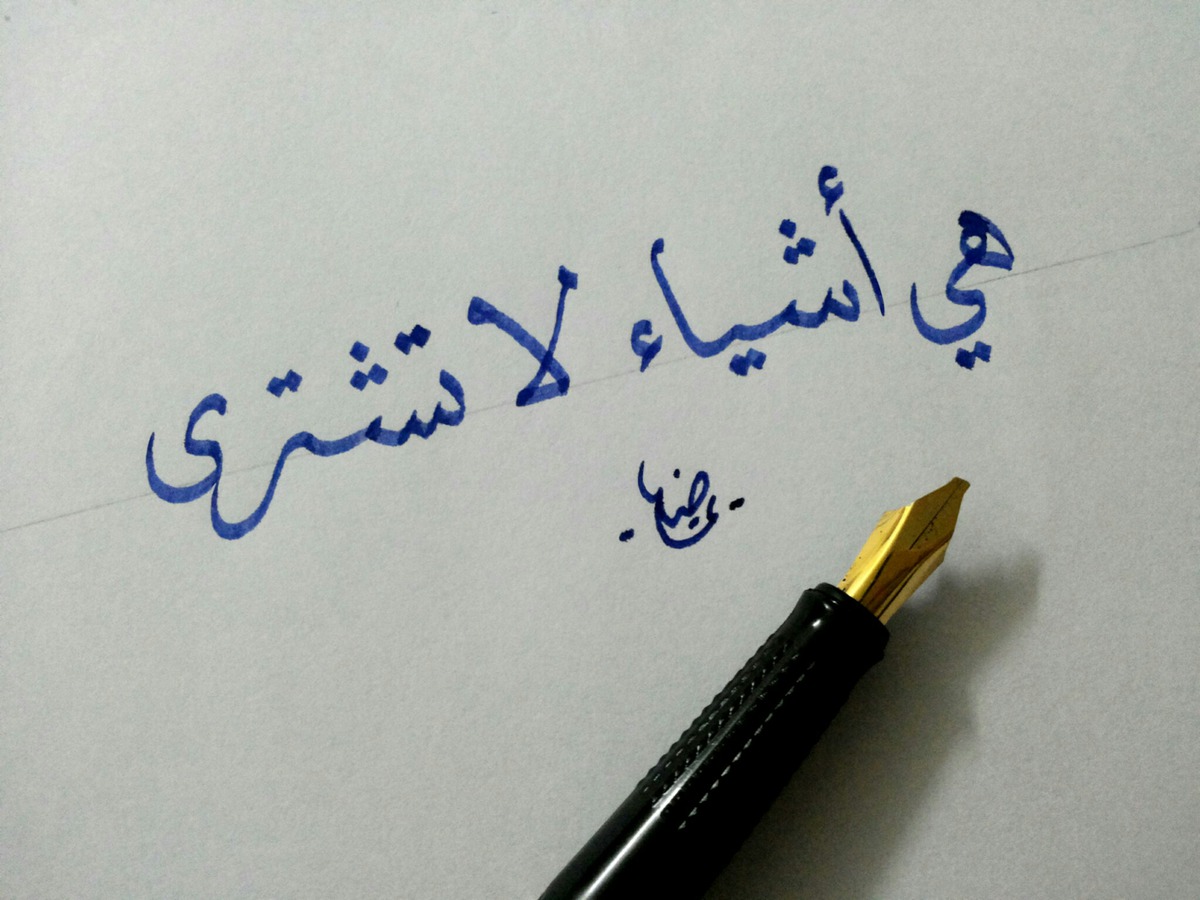 هي أشياء لا تشترى